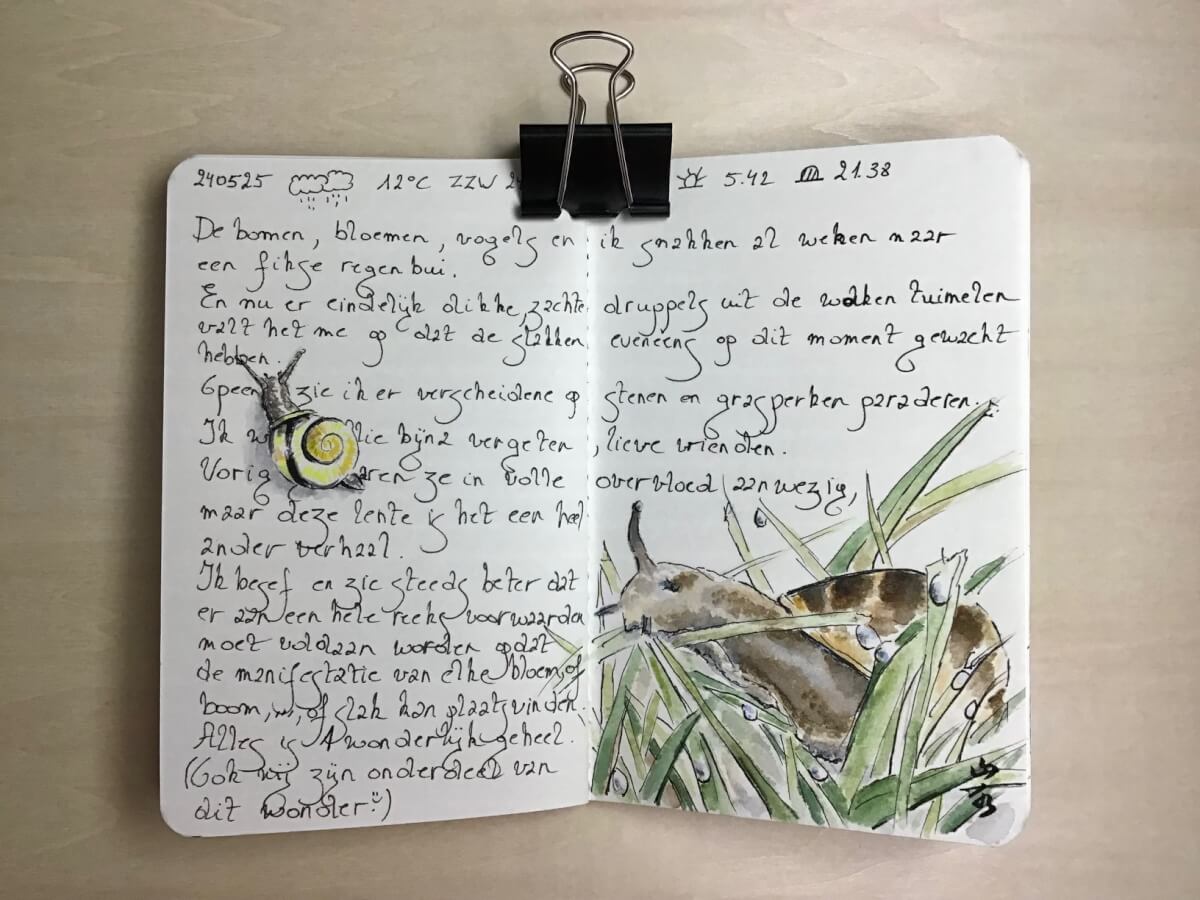 240525 12°C ZZW 5.42 21.38
De bomen, bloemen, vogels en ik snakken al weken naar
een fikse regenbui.
En nu er eindelijk dikke, zachte druppels uit de wolken tuimelen
valt het me op dat de slakken eveneens op dit moment gewacht
hebben.
Opeen zie ik er verscheidene op stenen en grasperken paraderen.
Ik llie bijna vergeten, lieve vrienden.
Vorig aren ze in volle overvloed aanwezig,
maar deze lente is het een heel
ander verhaal.
Ik besef en zie steeds beter dat
er aan een hele reeks voorwaarden
moet voldaan worden opdat
de manifestatie van elke bloem, of
boom, of slak kan plaatsvinden.
Alles is 1 wonderlijk geheel.
(Ook wij zijn onderdeel van
dit wonder :))